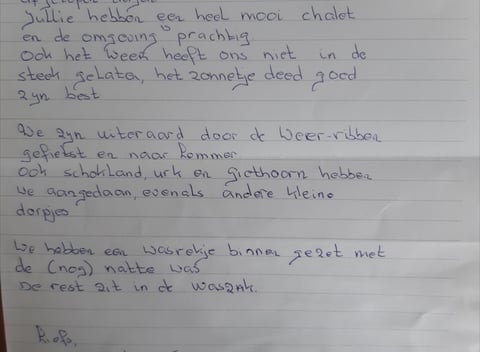 afgelopen dagen
Jullie hebben een heel mooi chalet
en de omgeving is prachtig
Ook het weer heeft ons niet in de
steek gelaten, het zonnetje deed goed
zijn best
We zijn uiteraard door de Weer-ribben
gefietst en naar Kommer
Ook schokland, urk en giethoorn hebben
we aangedaan, evenals andere kleine
dorpjes
We hebben een wasrekje binnen gezet met
de (nog) natte was
De rest zit in de waszak.